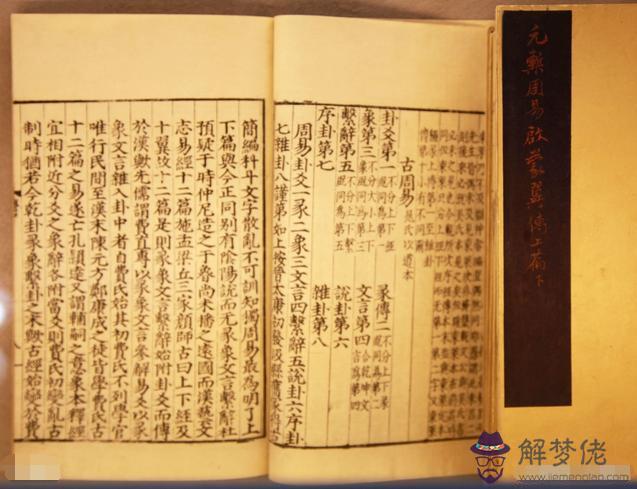 元槧周易啟蒙翼傳上篇下
古周易 晁氏以道本
卦爻第一 不分上下經 呂同為第一 彖傳二 不分上下彖 呂同為第二
象第三 不分大小上下 呂同為第三 文言第四 合乾坤文言為第四
繫辭第五 不分上下繫 呂同為第五 說卦第六
序卦第七 雜卦第八
周易卦爻一彖二象三文言四繫辭五說卦六序卦
七雜卦八謹第如上按晉太康初發汲縣舊冢得古
簡編科斗文字散亂不可訓知獨周易最為明了上
下篇與今正同別有陰陽說而无彖象文言繫辭杜
預疑于時仲尼造之于魯尚未播之遠國而漢藝文
志易經十二篇施孟梁丘三家顏師古曰上下經及
十翼故十二篇是則彖象文言繫辭始附卦爻而傳
於漢歟先儒謂費直專以彖象文言參解易爻以彖
象文言雜入卦中者自費氏始其初費氏不列學官
唯行民間至漢末陳元方鄭康成之徒皆學費氏古
十二篇之易遂亡孔穎達又謂輔嗣之意象本釋經
宜相附近分爻之象辭各附當爻則費氏初變亂古
制時猶若今乾卦彖象繫卦之末歟古經始變於費
解梦佬